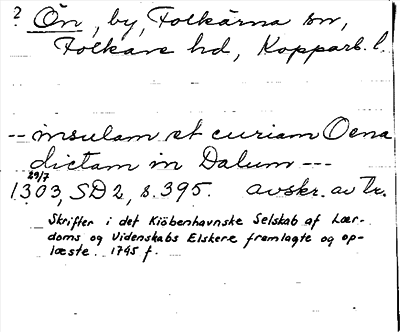 ? Ön, by, Folkärna sn,
Folkare hd, Kopparb. l.
-- insulam et curiam Oena
dictam in Dalum ---
29/7
1303, SD 2, s. 395. avskr. av tr.
Skrifter i det Kiöbenhavnske Selskab af Lær-
doms og Videnskabs Elskere fremlagte og op-
læste. 1745 f.